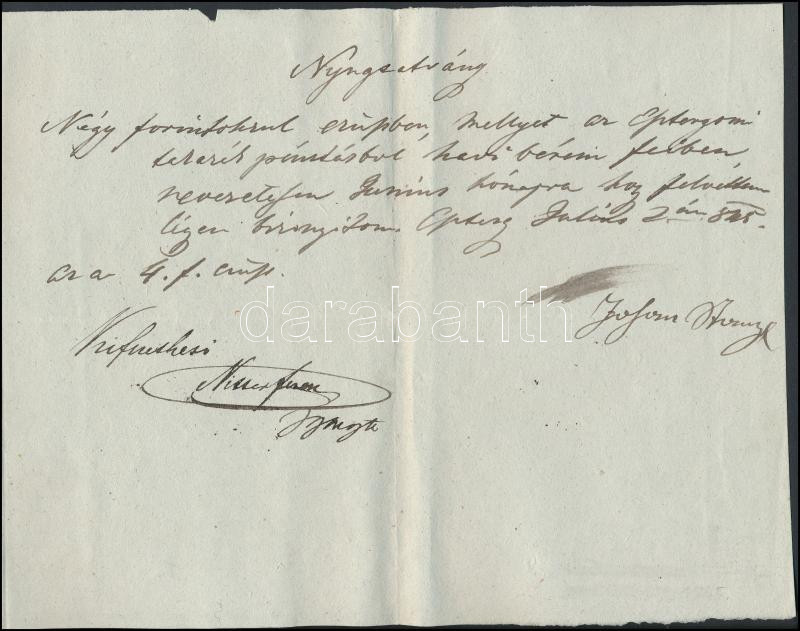 Nyugtatvány
Négy forintokrul ezüstben, mellyet az Esztergomi
takarék pénztárbol, havi bérem fejében,
nevezetesen Junius hónapra hogy felvettem
légyen bizonyitom. Eszterg Julius 2 án 845.
az a 4. f. ezüst.
Johan Stanzl
Kifizethető
darabanth